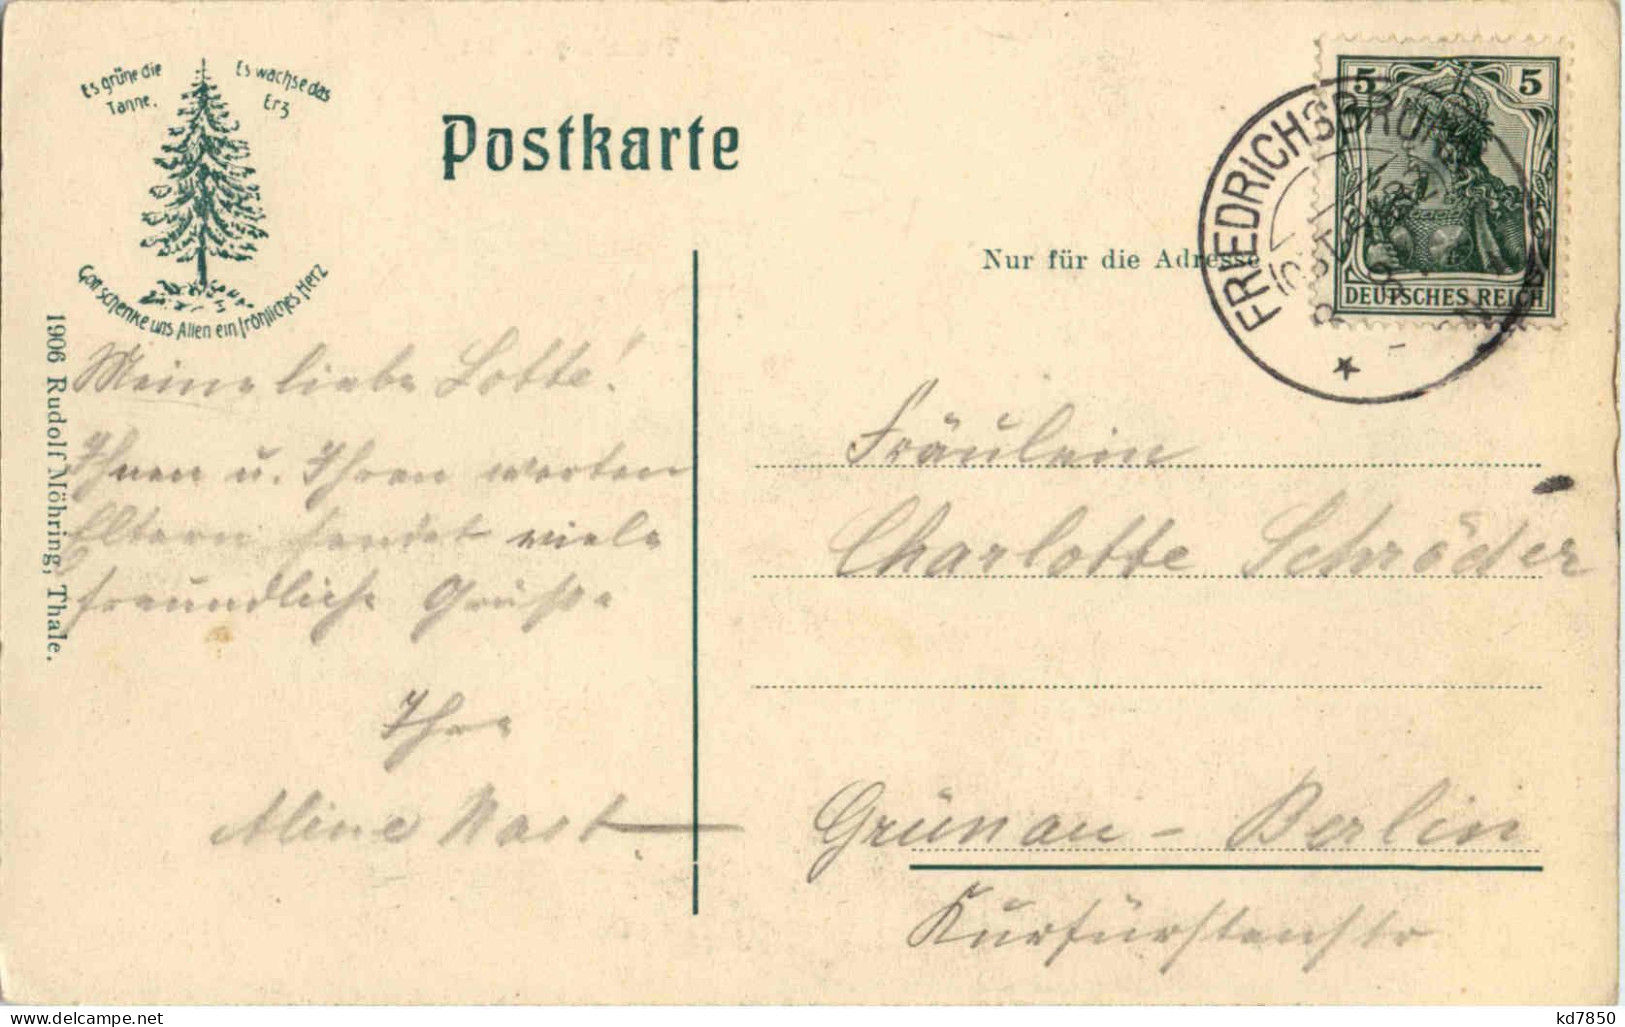 Es grüne die
Tanne.
Es wachse das
Erz
Gott schenke uns Allen ein fröhliches Herz
Postkarte
Nur für die Adresse
5 5
DEUTSCHES REICH
FRIEDRICHSBRUNN
1906 Rudolf Möhring, Thale.
Meine liebe Lotte!
Ihnen u. Ihren werten
Eltern sendet viele
freundliche Grüße
Ihre
Aline Nast
Fräulein
Charlotte Schröder
Grünau - Berlin
Kurfürstenstr
kd7850